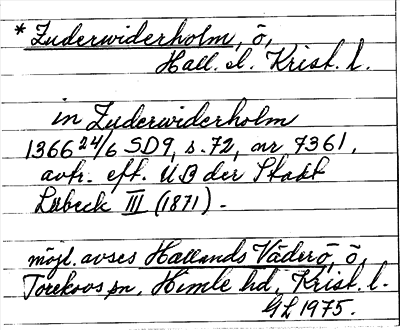 * Zuderwiderholm, ö,
Hall. el. Krist. l.
in Zuderwiderholm
1366 24/6 SD9, s. 72, nr 7361,
avtr. eft. UB der Stadt
Lübeck III (1871) -
möjl. avses Hallands Väderö, ö,
Torekovs sn, Himle hd, Krist. l.
GL 1975.